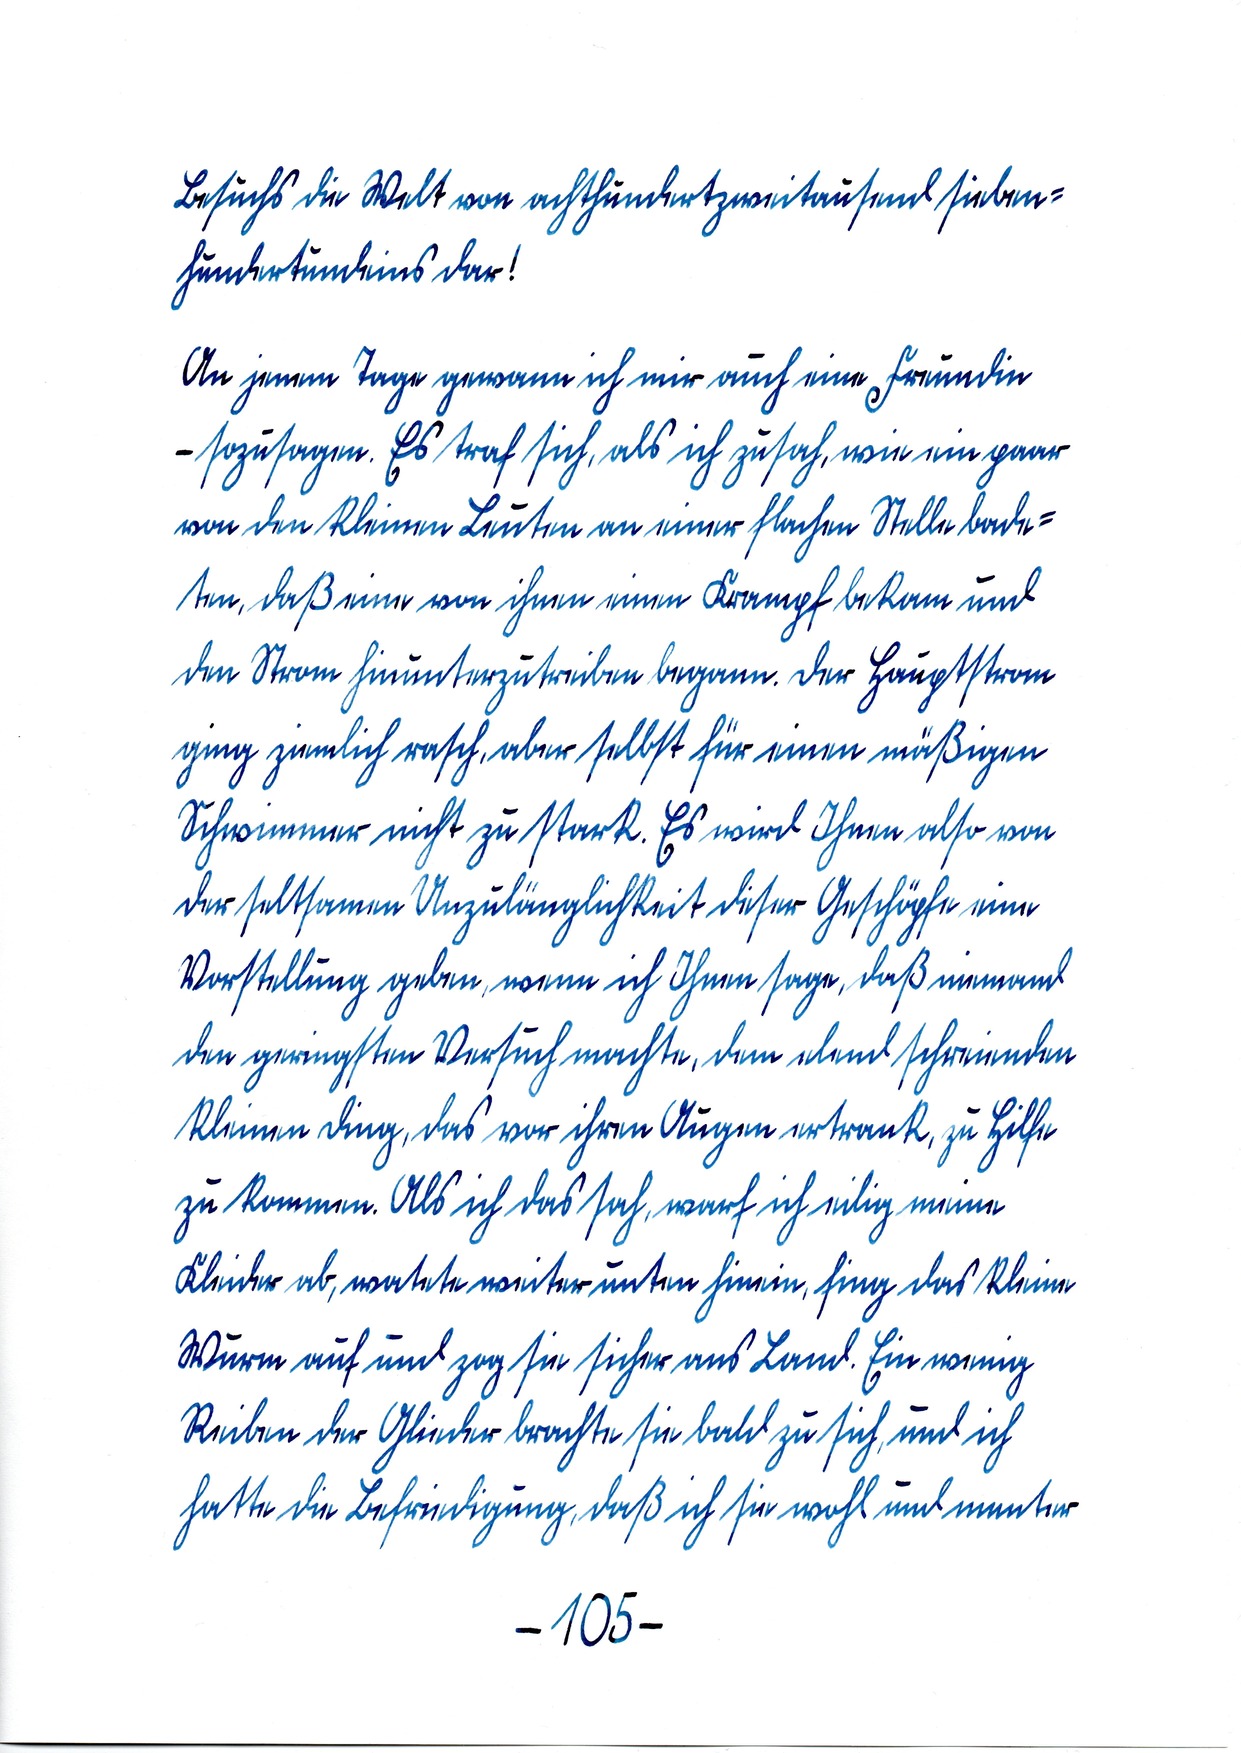 Besuchs die Welt von achthundertzweitausend sieben=
hundertundeins dar!
An jenem Tage gewann ich mir auch eine Freundin
- sozusagen. Es traf sich, als ich zusah, wie ein paar
von den kleinen Leuten an einer flachen Stelle bade=
ten, daß eine von ihnen einen Krampf bekam und
den Strom hinunterzutreiben begann. Der Hauptstrom
ging ziemlich rasch, aber selbst für einen mäßigen
Schwimmer nicht zu stark. Es wird Ihnen also von
der seltsamen Unzulänglichkeit dieser Geschöpfe eine
Vorstellung geben, wenn ich Ihnen sage, daß niemand
den geringsten Versuch machte, dem elend schreienden
kleinen Ding, das vor ihren Augen ertrank, zu Hilfe
zu kommen. Als ich das sah, warf ich eilig meine
Kleider ab, watete weiter unten hinein, fing das kleine
Wurm auf und zog sie sicher ans Land. Ein wenig
Reiben der Glieder brachte sie bald zu sich, und ich
hatte die Befriedigung, daß ich sie wohl und munter
- 105 -